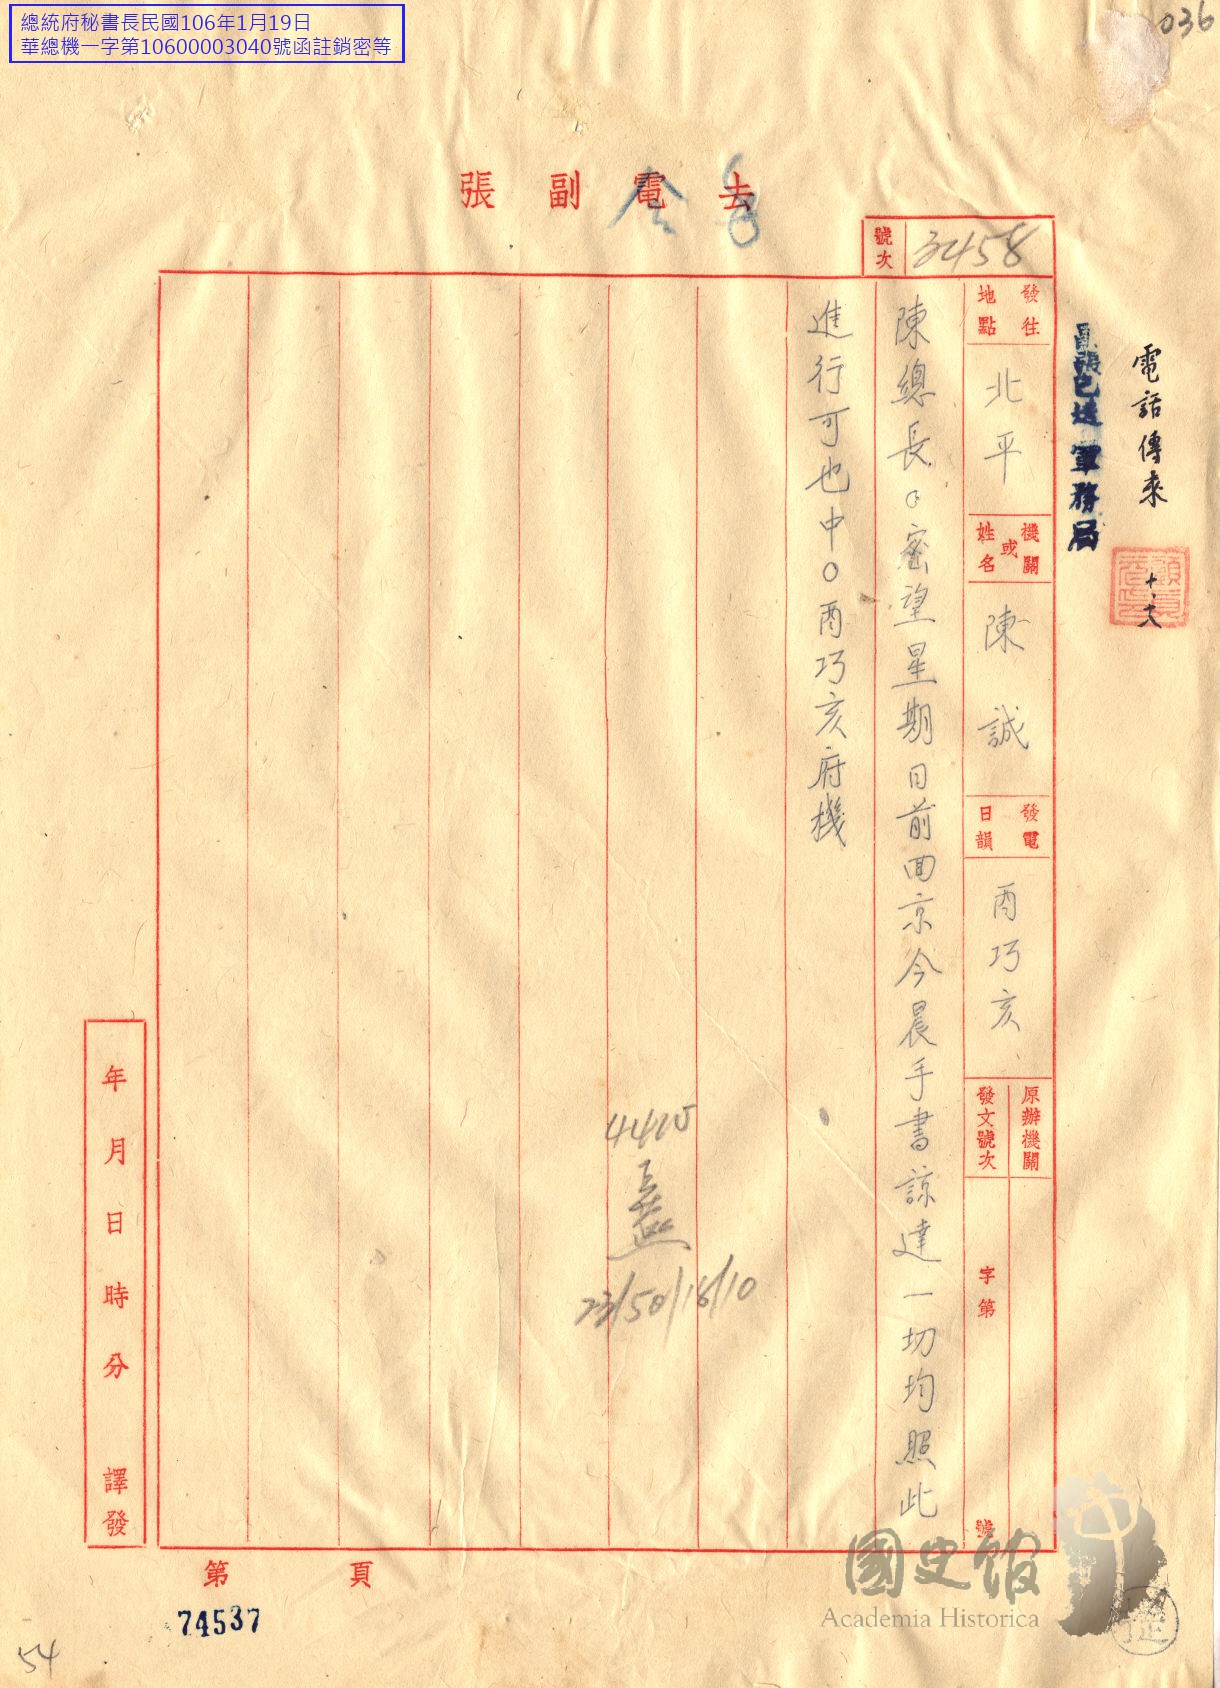 總統府秘書長民國106年1月19日
華總機一字第10600003040號函註銷密等
036
去電副張
號次
3458
電話傳來
十、十八
副張已送軍務局
發往地點
北平
機關或姓名
陳誠
發電日韻
酉巧亥
原辦機關
發文號次
字第
號
陳總長。密望星期日前回京今晨手書諒達一切均照此
進行可也中○酉巧亥府機
4415
23/50/18/10
年月日時分
譯發
第頁
74537
54
國史館
Academia Historica